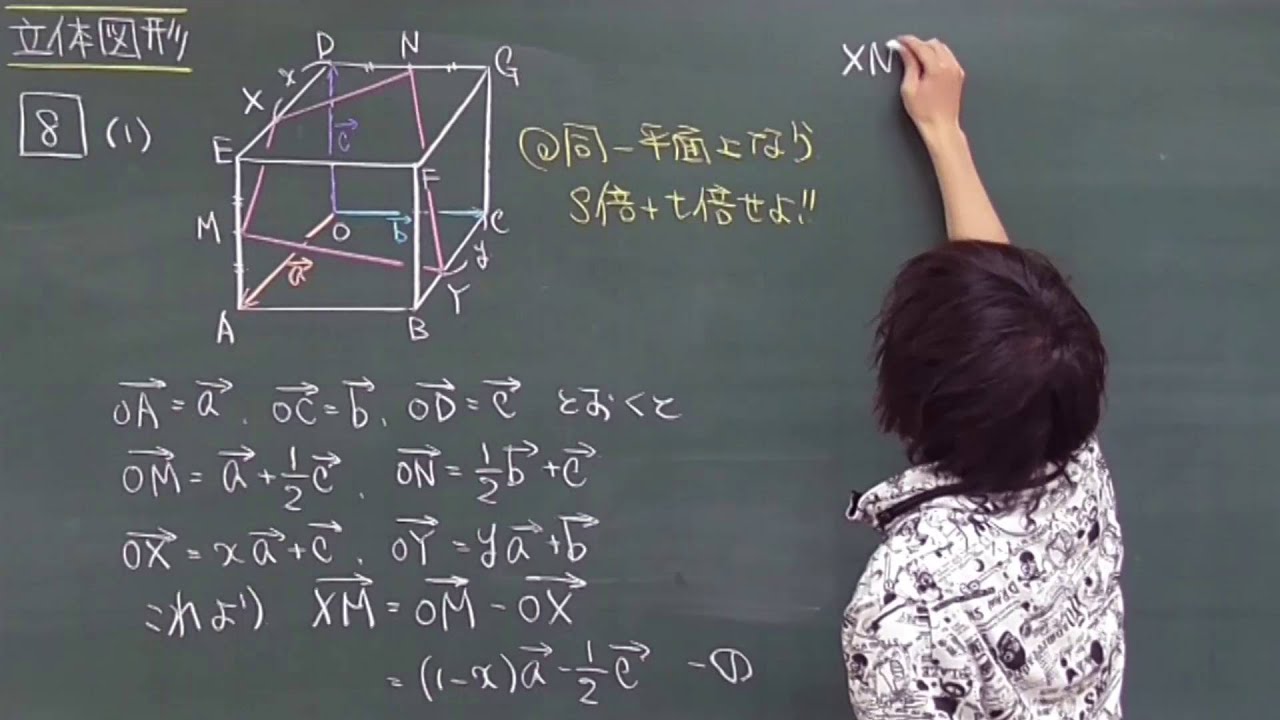 立体図形
8 (1)
D N G
X x
E c⃗ F
M O b⃗ C
a⃗ y
Y
A B
@同一平面上なら
s倍+t倍せよ!!
OA⃗ = a⃗, OC⃗ = b⃗, OD⃗ = c⃗ とおくと
OM⃗ = a⃗ + 1/2 c⃗, ON⃗ = 1/2 b⃗ + c⃗
OX⃗ = xa⃗ + c⃗, OY⃗ = ya⃗ + b⃗
これより XM⃗ = OM⃗ - OX⃗
= (1-x)a⃗ - 1/2 c⃗ -①
XN